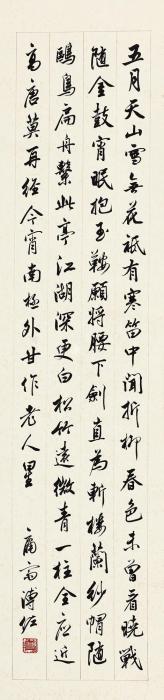 五月天山雪無花祗有寒笛中聞折柳春色未曾看曉戰
隨金鼓宵眠抱玉鞍願將腰下劍直為斬樓蘭紗帽隨
鷗鳥扁舟繫此亭江湖深更白松竹遠微青一柱全應近
高唐莫再經今宵南極外甘作老人星 庸齋溥佐